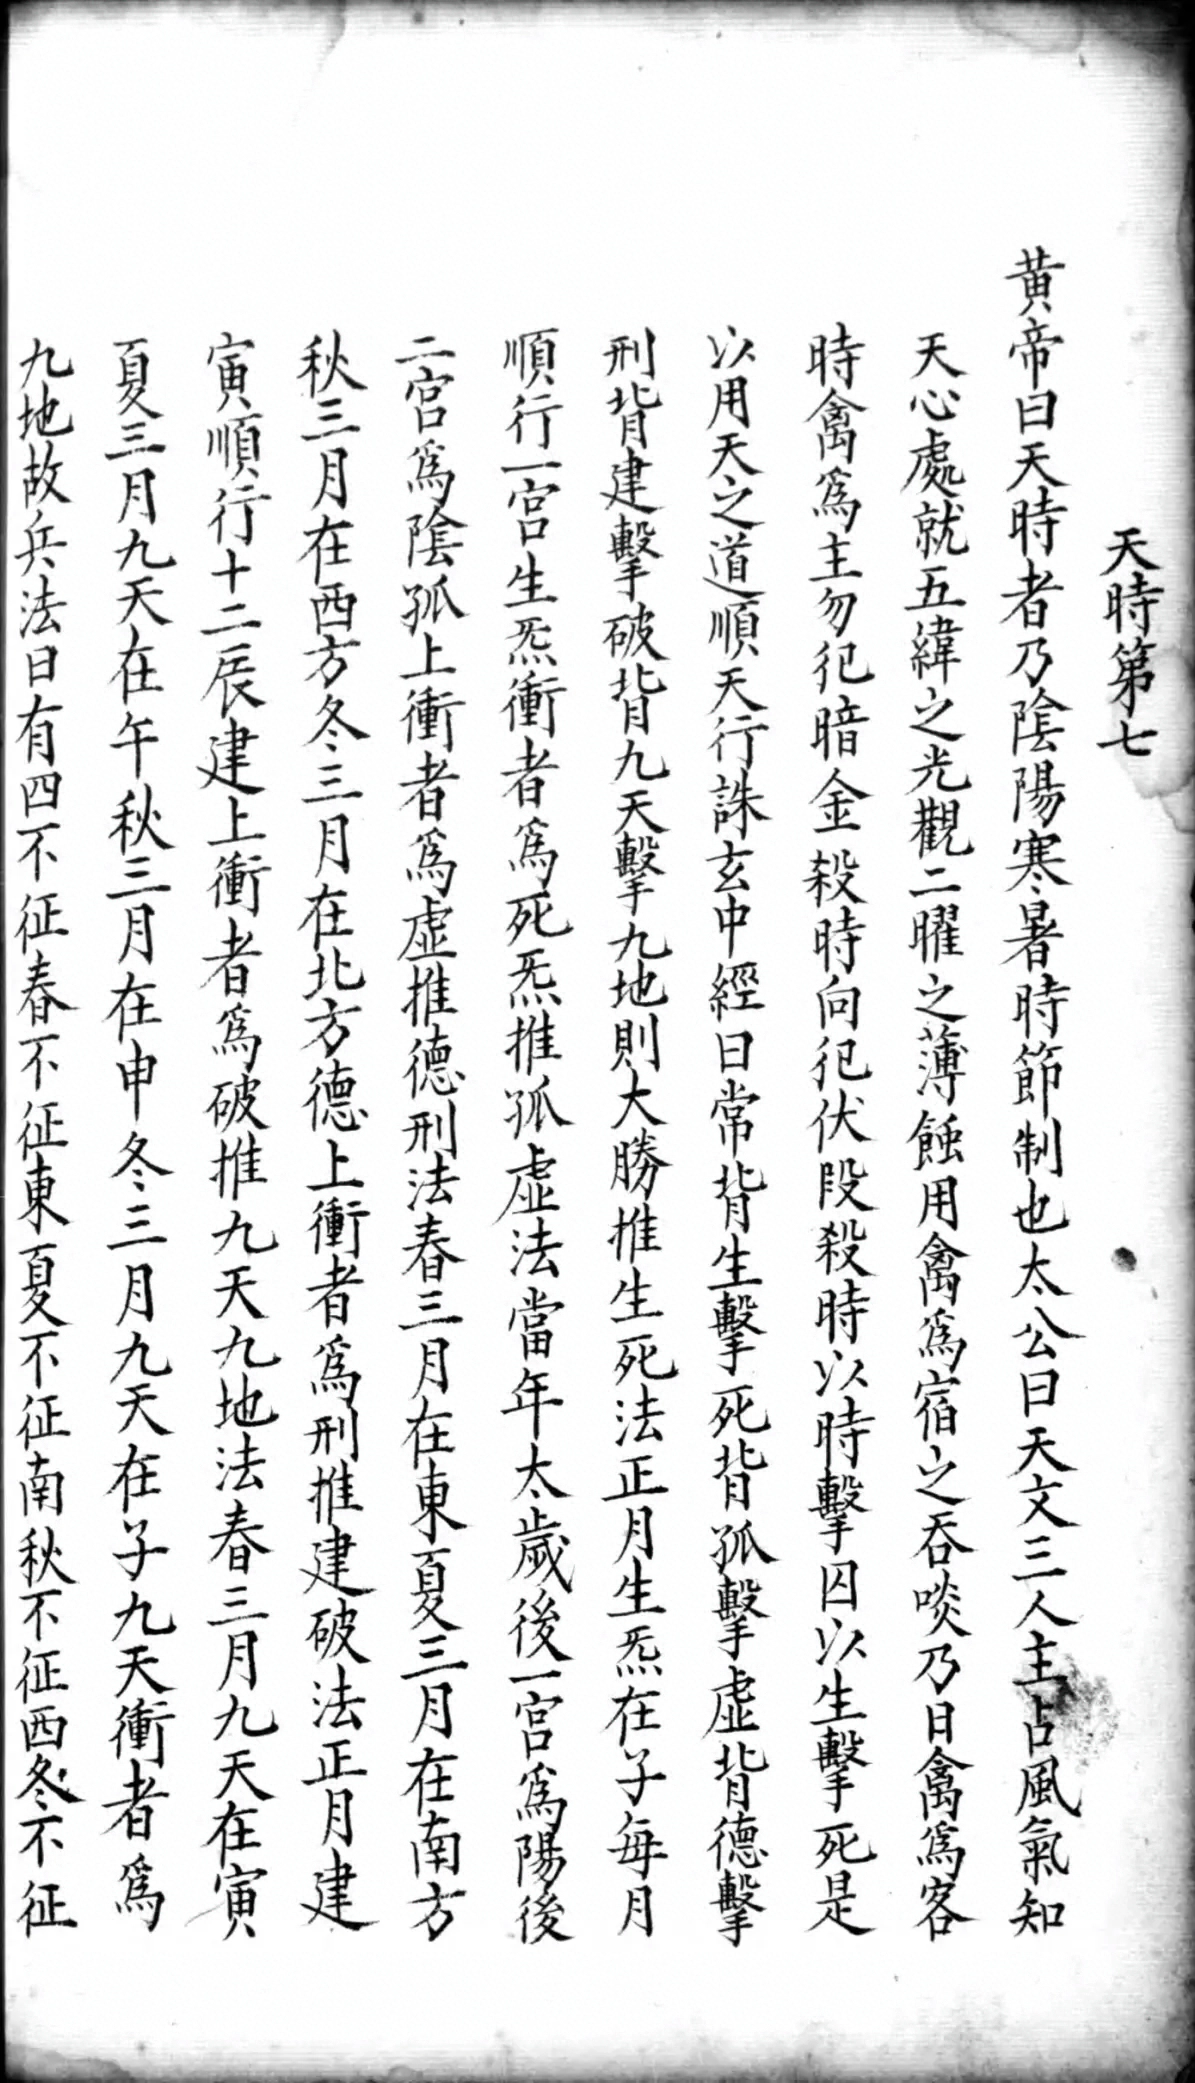 天時第七
黃帝曰天時者乃陰陽寒暑時節制也太公曰天文三人主占風氣知
天心處就五緯之光觀二曜之薄蝕用禽爲宿之吞啖乃日禽爲客
時禽爲主勿犯暗金殺時向犯伏段殺時以時擊囚以生擊死是
以用天之道順天行誅玄中經曰常背生擊死背孤擊虛背德擊
刑背建擊破背九天擊九地則大勝推生死法正月生炁在子每月
順行一宮生炁衝者爲死炁推孤虛法當年太歲後一宮爲陽後
二宮爲陰孤上衝者爲虛推德刑法春三月在東夏三月在南方
秋三月在西方冬三月在北方德上衝者爲刑推建破法正月建
寅順行十二辰建上衝者爲破推九天九地法春三月九天在寅
夏三月九天在午秋三月在申冬三月九天在子九天衝者爲
九地故兵法曰有四不征春不征東夏不征南秋不征西冬不征